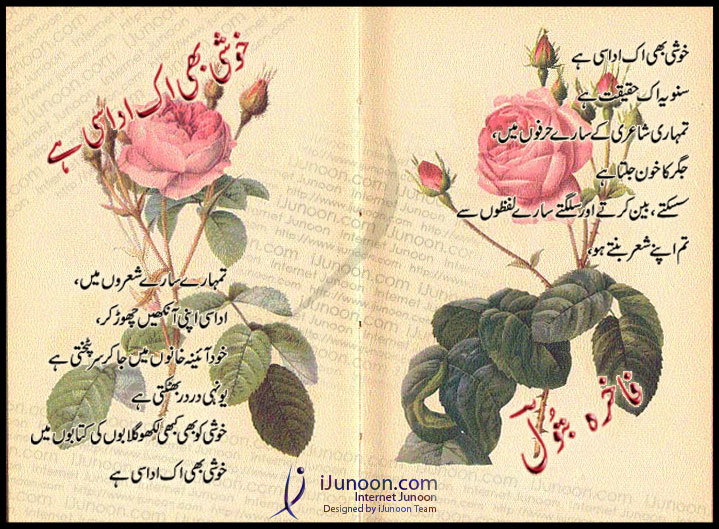 خوشی بھی اک اداسی ہے
خوشی بھی اک اداسی ہے
سنو یہ اک حقیقت ہے
تمہاری شاعری کے سارے حرفوں میں،
جگر کا خون جلتا ہے
سسکتے، بین کرتے اور سلگتے سارے لفظوں سے
تم اپنے شعر بنتے ہو،
تمہارے سارے شعروں میں،
اداسی اپنی آنکھیں چھوڑ کر،
خود آئینہ خانوں میں جا کر سر پٹختی ہے
یونہی در در بھٹکتی ہے
خوشی کو بھی کبھی لکھو گلابوں کی کتابوں میں
خوشی بھی اک اداسی ہے
فاخرہ بتول
iJunoon.com
Internet Junoon
Designed by iJunoon Team